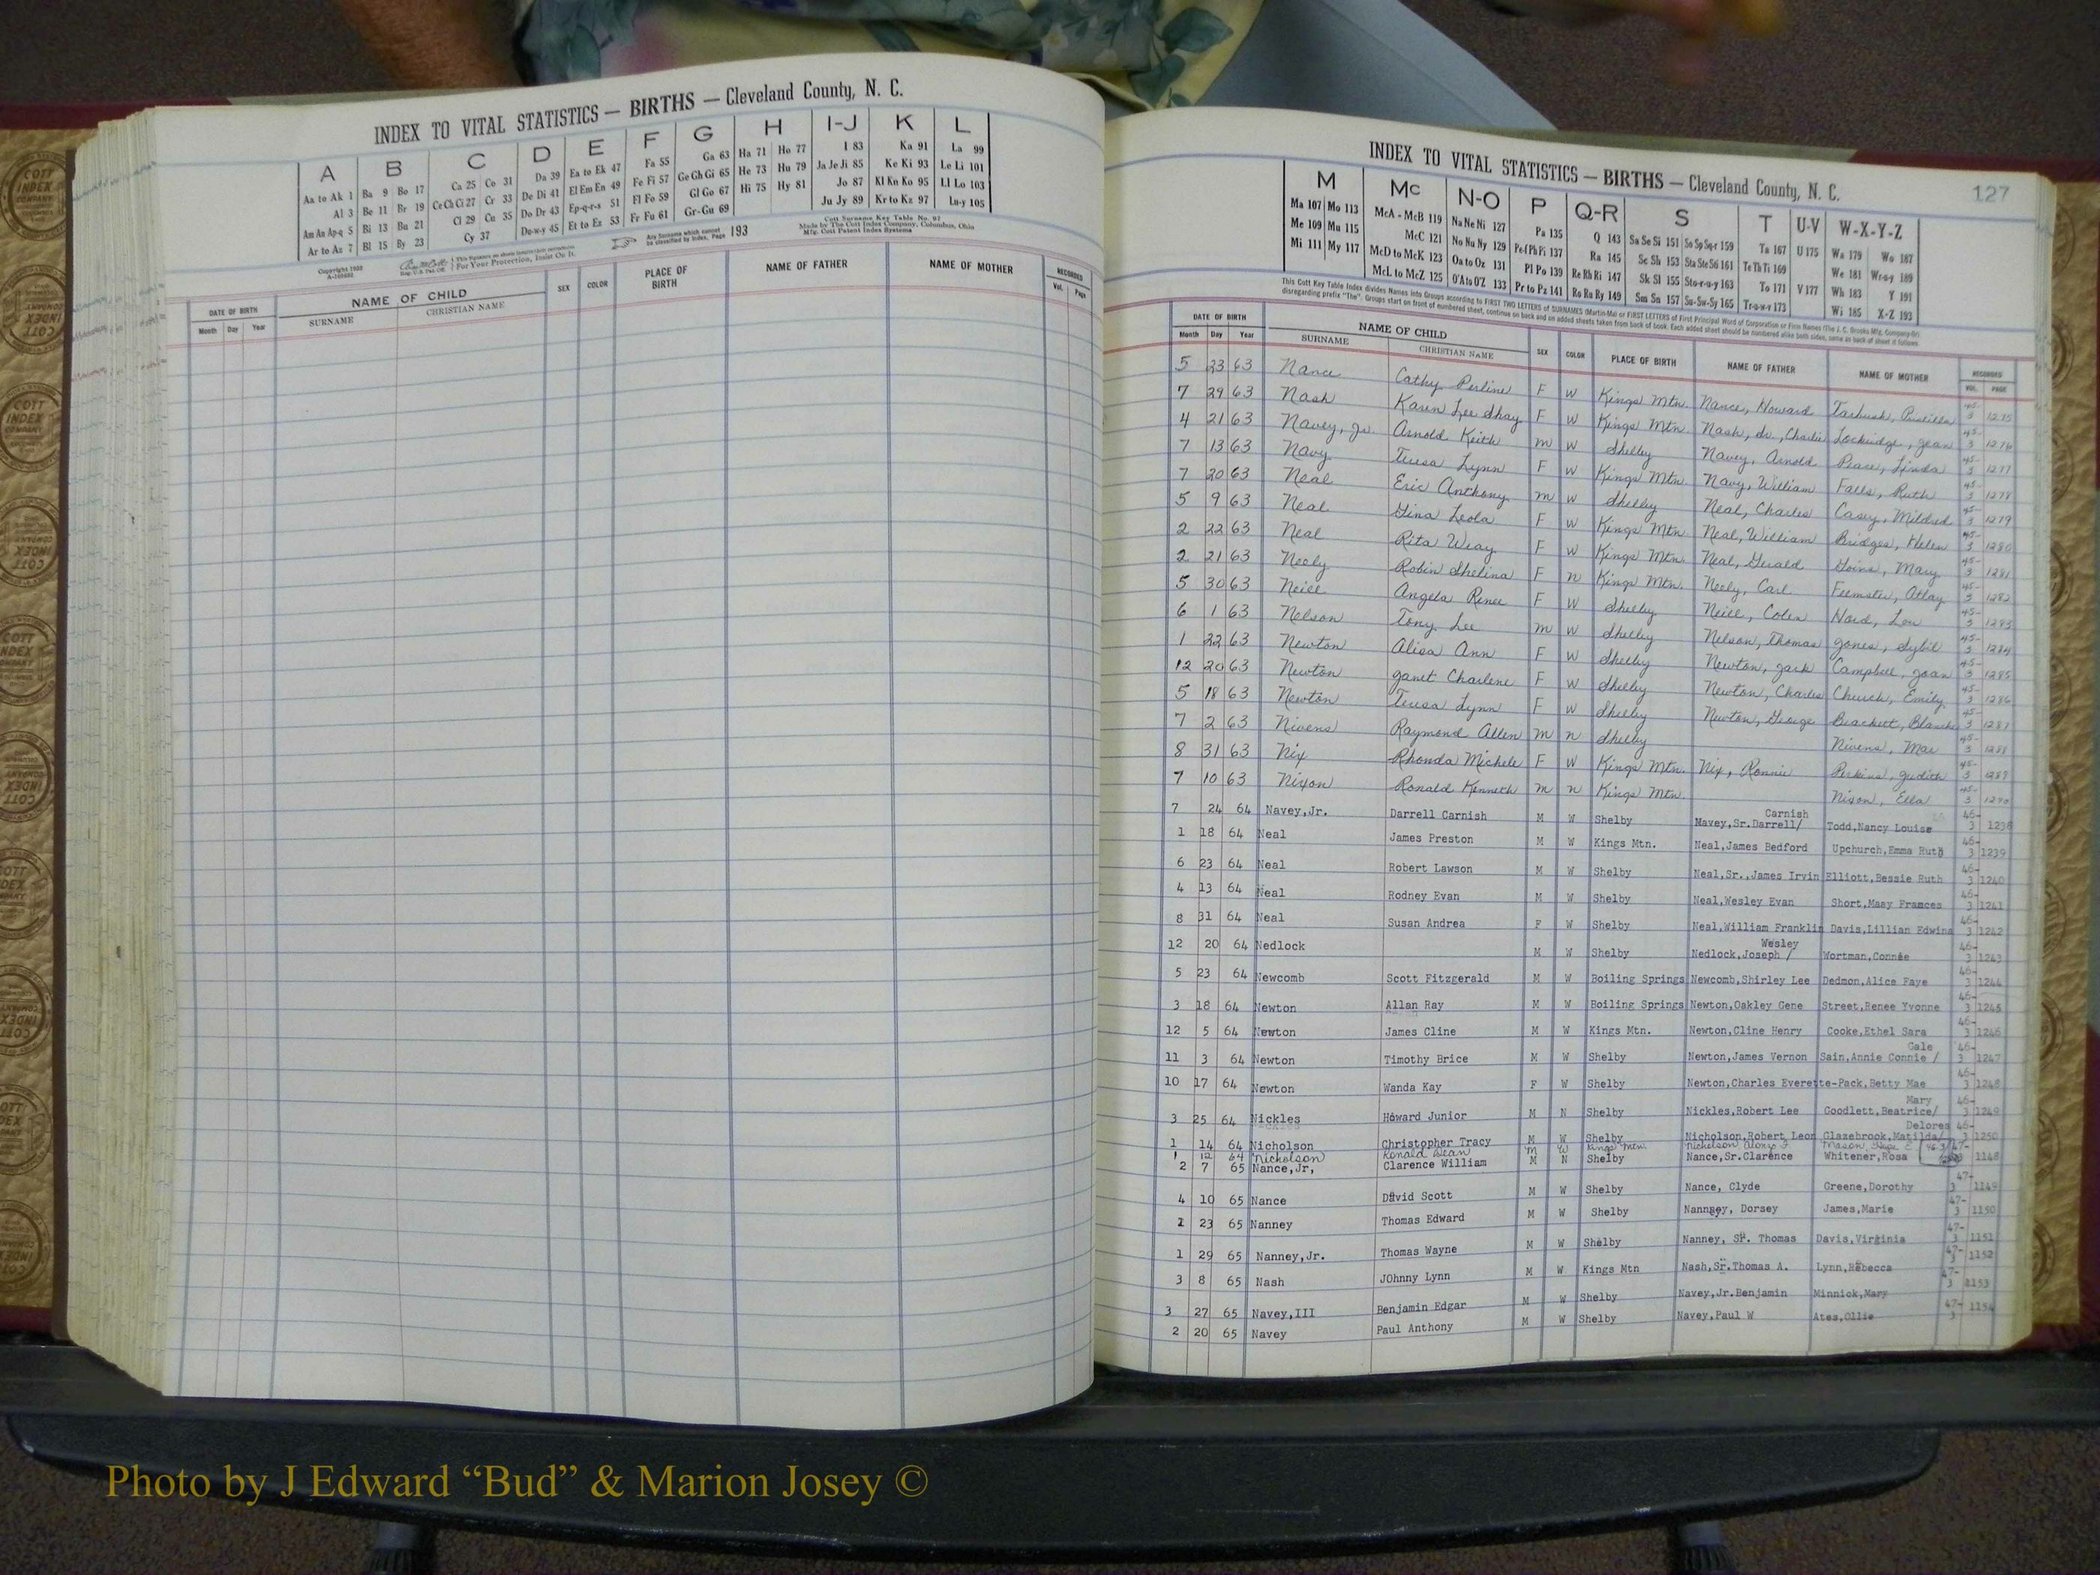 INDEX TO VITAL STATISTICS — BIRTHS — Cleveland County, N. C.
A B C D E F G H I-J K L
Aa to Ak 1 Ba 9 Bo 17 Ca 25 Co 31 Da 39 Ea to Ek 47 Fa 55 Ga 63 Ha 71 Ho 77 I 83 Ka 91 La 99
Al 3 Be 11 Br 19 Ce Ch Ci 27 Cr 33 De Di 41 El Em En 49 Fe Fi 57 Ge Gh Gi 65 He 73 Hu 79 Ja Je Ji 85 Ke Ki 93 Le Li 101
Am An Ap-q 5 Bi 13 Bu 21 Cl 29 Cu 35 Do Dr 43 Ep-q-r-s 51 Fl Fo 59 Gl Go 67 Hi 75 Hy 81 Jo 87 Kl Kn Ko 95 Ll Lo 103
Ar to Az 7 Bl 15 By 23 Cy 37 Du-w-y 45 Et to Ez 53 Fr Fu 61 Gr-Gu 69 Ju Jy 89 Kr to Kz 97 Lu-y 105
Any Surname which cannot be classified by Index, Page 193
Cott Surname Key Table No. 97
Made by The Cott Index Company, Columbus, Ohio
Mfg. Cott Patent Index Systems
For Your Protection, Insist On It.
DATE OF BIRTH NAME OF CHILD SEX COLOR PLACE OF BIRTH NAME OF FATHER NAME OF MOTHER RECORDED
Month Day Year SURNAME CHRISTIAN NAME Vol. Page
INDEX TO VITAL STATISTICS — BIRTHS — Cleveland County, N. C. 127
M Mc N-O P Q-R S T U-V W-X-Y-Z
Ma 107 Mo 113 McA - McB 119 Na Ne Ni 127 Pa 135 Q 143 Sa Se Si 151 So Sp Sq-r 159 Ta 167 U 175 Wa 179 Wo 187
Me 109 Mu 115 McC 121 No Nu Ny 129 Pe-f Ph Pi 137 Ra 145 Sc Sh 153 Sta Ste Sti 161 Te Th Ti 169 We 181 Wr-u-y 189
Mi 111 My 117 McD to McK 123 Oa to Oz 131 Pl Po 139 Re Rh Ri 147 Sk Sl 155 Sto-r-u-y 163 To 171 V 177 Wh 183 Y 191
McL to McZ 125 O'A to O'Z 133 Pr to Pz 141 Ro Ru Ry 149 Sm Sn 157 Su-Sw-Sy 165 Tr-u-w-y 173 Wi 185 X-Z 193
DATE OF BIRTH NAME OF CHILD SEX COLOR PLACE OF BIRTH NAME OF FATHER NAME OF MOTHER RECORDED
Month Day Year SURNAME CHRISTIAN NAME VOL. PAGE
5 23 63 Nance Cathy Perline F W Kings Mtn. Nance, Howard 45-3 1275
7 29 63 Nash Karen Lee Shay F W Kings Mtn. Nash, Sr., Charlie Lockridge, Jean 45-3 1276
4 21 63 Navey, Jr. Arnold Keith M W Shelby Navey, Arnold Peace, Linda 45-3 1277
7 13 63 Navy Teresa Lynn F W Kings Mtn. Navy, William Falls, Ruth 45-3 1278
7 20 63 Neal Eric Anthony M W Shelby Neal, Charles Casey, Mildred 45-3 1279
5 9 63 Neal Gina Leola F W Kings Mtn Neal, William Bridges, Helen 45-3 1280
2 22 63 Neal Rita Wray F W Kings Mtn. Neal, Gerald Goins, Mary 45-3 1281
2 21 63 Neely Robin Shelina F N Kings Mtn. Neely, Carl Feemster, 45-3 1282
5 30 63 Neill Angela Renee F W Shelby Neill, Colen Hord, Lou 45-3 1283
6 1 63 Nelson Tony Lee M W Shelby Nelson, Thomas Jones, Sybil 45-3 1284
1 22 63 Newton Alisa Ann F W Shelby Newton, Jack Campbell, Joan 45-3 1285
12 20 63 Newton Janet Charlene F W Shelby Newton, Charles Church, Emily 45-3 1286
5 18 63 Newton Teresa Lynn F W Shelby Newton, George Brackett, Blanche 45-3 1287
7 2 63 Nivens Raymond Allen M N Shelby Nivens, Mae 45-3 1288
8 31 63 Nix Rhonda Michele F W Kings Mtn. Nix, Ronnie Perkins, Judith 45-3 1289
7 10 63 Nixon Ronald Kenneth M N Kings Mtn. Nixon, Ella 45-3 1290
7 24 64 Navey,Jr. Darrell Carnish M W Shelby Mavey,Sr.Darrell/ Carnish Todd,Nancy Louise 46-3 1238
1 18 64 Neal James Preston M W Kings Mtn. Neal,James Bedford Upchurch,Emma Ruth 46-3 1239
6 23 64 Neal Robert Lawson M W Shelby Neal,Sr.,James Irvin Elliott,Bessie Ruth 46-3 1240
4 13 64 Neal Rodney Evan M W Shelby Neal,Wesley Evan Short,Mary Frances 46-3 1241
8 31 64 Neal Susan Andrea F W Shelby Neal,William Franklin Davis,Lillian Edwina 46-3 1242
12 20 64 Nedlock M W Shelby Nedlock,Joseph / Wesley Wortman,Connie 46-3 1243
5 23 64 Newcomb Scott Fitzgerald M W Boiling Springs Newcomb,Shirley Lee Dedmon,Alice Faye 46-3 1244
3 18 64 Newton Allan Ray M W Boiling Springs Newton,Oakley Gene Street,Renee Yvonne 46-3 1245
12 5 64 Newton James Cline M W Kings Mtn. Newton,Cline Henry Cooke,Ethel Sara 46-3 1246
11 3 64 Newton Timothy Brice M W Shelby Newton,James Vernon Sain,Annie Connie / Gale 46-3 1247
10 17 64 Newton Wanda Kay F W Shelby Newton,Charles Everette-Pack,Betty Mae 46-3 1248
3 25 64 Nickles Howard Junior M N Shelby Nickles,Robert Lee Goodlett,Beatrice/ Mary 46-3 1249
1 14 64 Nicholson Christopher Tracy M W Shelby Nicholson,Robert Leon Glazebrook,Matilda/ Delores 46-3 1250
1 12 64 Nicholson Ronald Dean M W Kings Mtn. Nicholson Alonzo F Mason,
2 7 65 Nance,Jr, Clarence William M N Shelby Nance,Sr.Clarence Whitener,Rosa 47-3 1148
4 10 65 Nance David Scott M W Shelby Nance, Clyde Greene,Dorothy 47-3 1149
1 23 65 Nanney Thomas Edward M W Shelby Nannney, Dorsey James,Marie 47-3 1150
1 29 65 Nanney,Jr. Thomas Wayne M W Shelby Nanney, Sr. Thomas Davis,Virginia 47-3 1151
3 8 65 Nash JOhnny Lynn M W Kings Mtn Nash,Sr.Thomas A. Lynn,Rebecca 47-3 1152
3 27 65 Navey,III Benjamin Edgar M W Shelby Navey,Jr.Benjamin Minnick,Mary 47-3 1153
2 20 65 Navey Paul Anthony M W Shelby Navey,Paul W Ates,Ollie 47-3 1154
Photo by J Edward “Bud” & Marion Josey ©